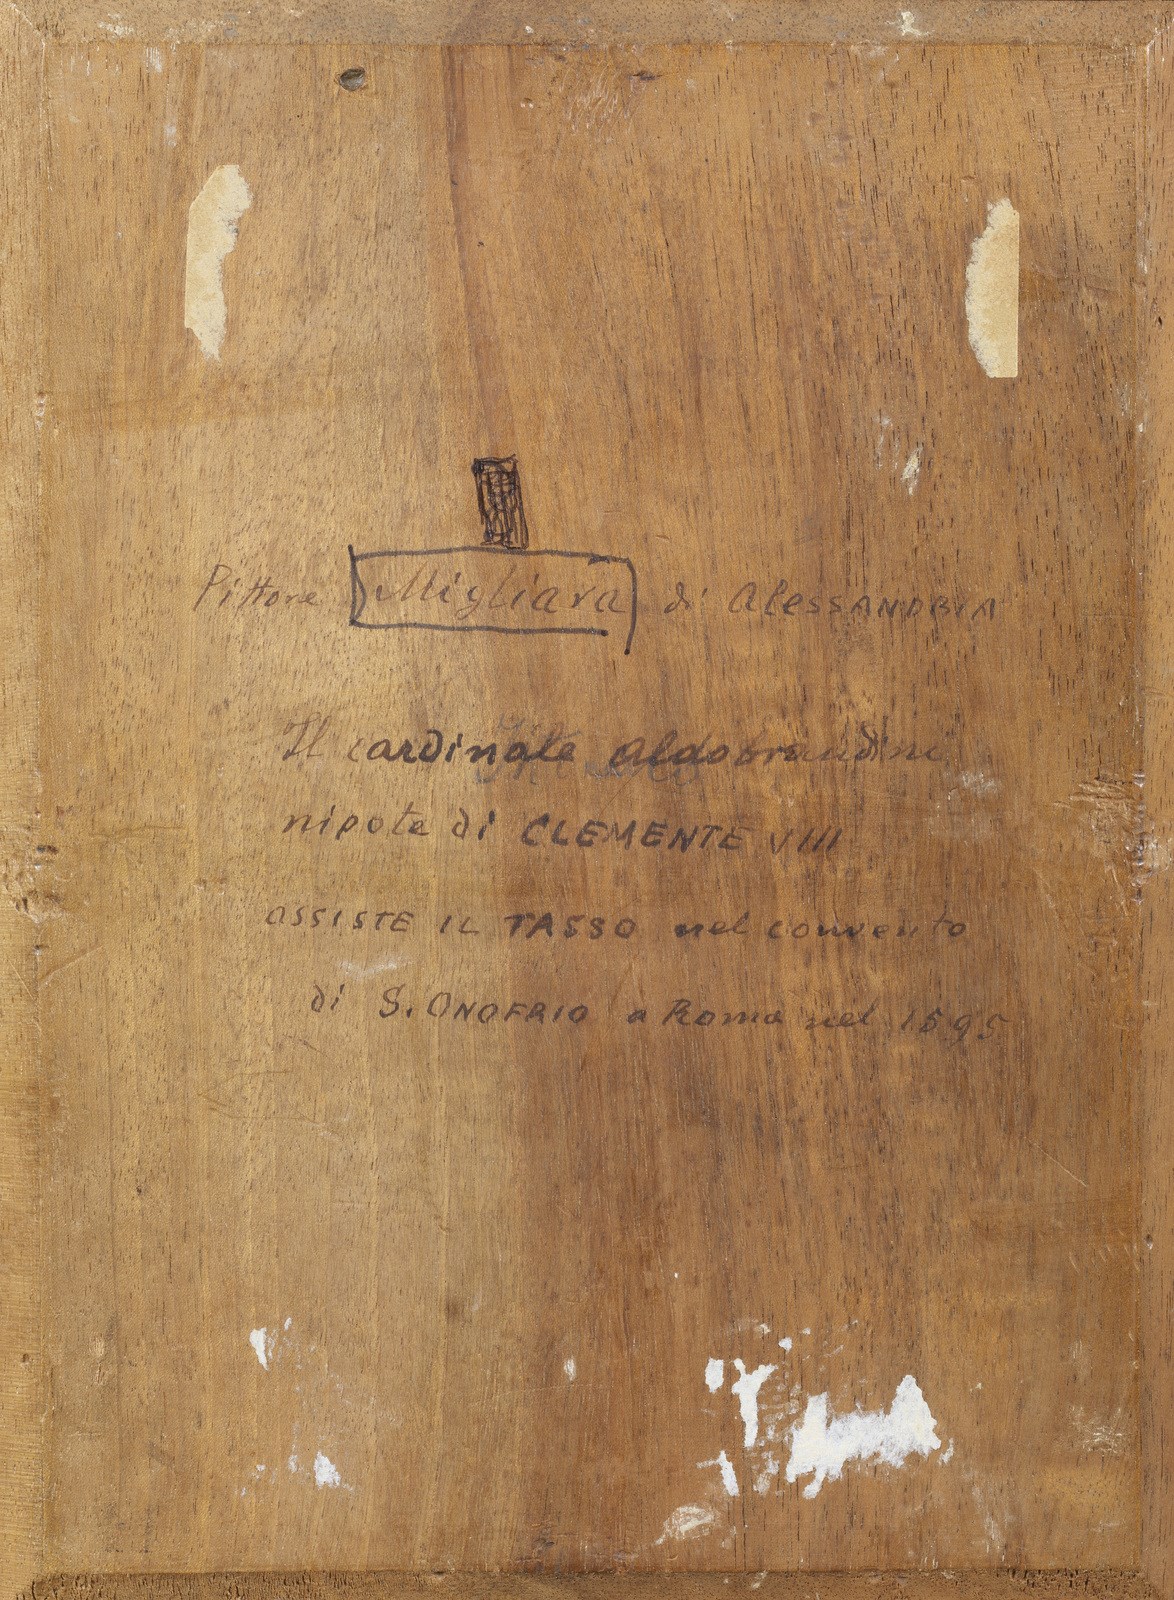 Pittore Migliara di AlESSANDRIA
Il cardinale aldobrandini
nipote di CLEMENTE VIII
assiste IL TASSO nel convento
di S. ONOFRIO a Roma nel 1595